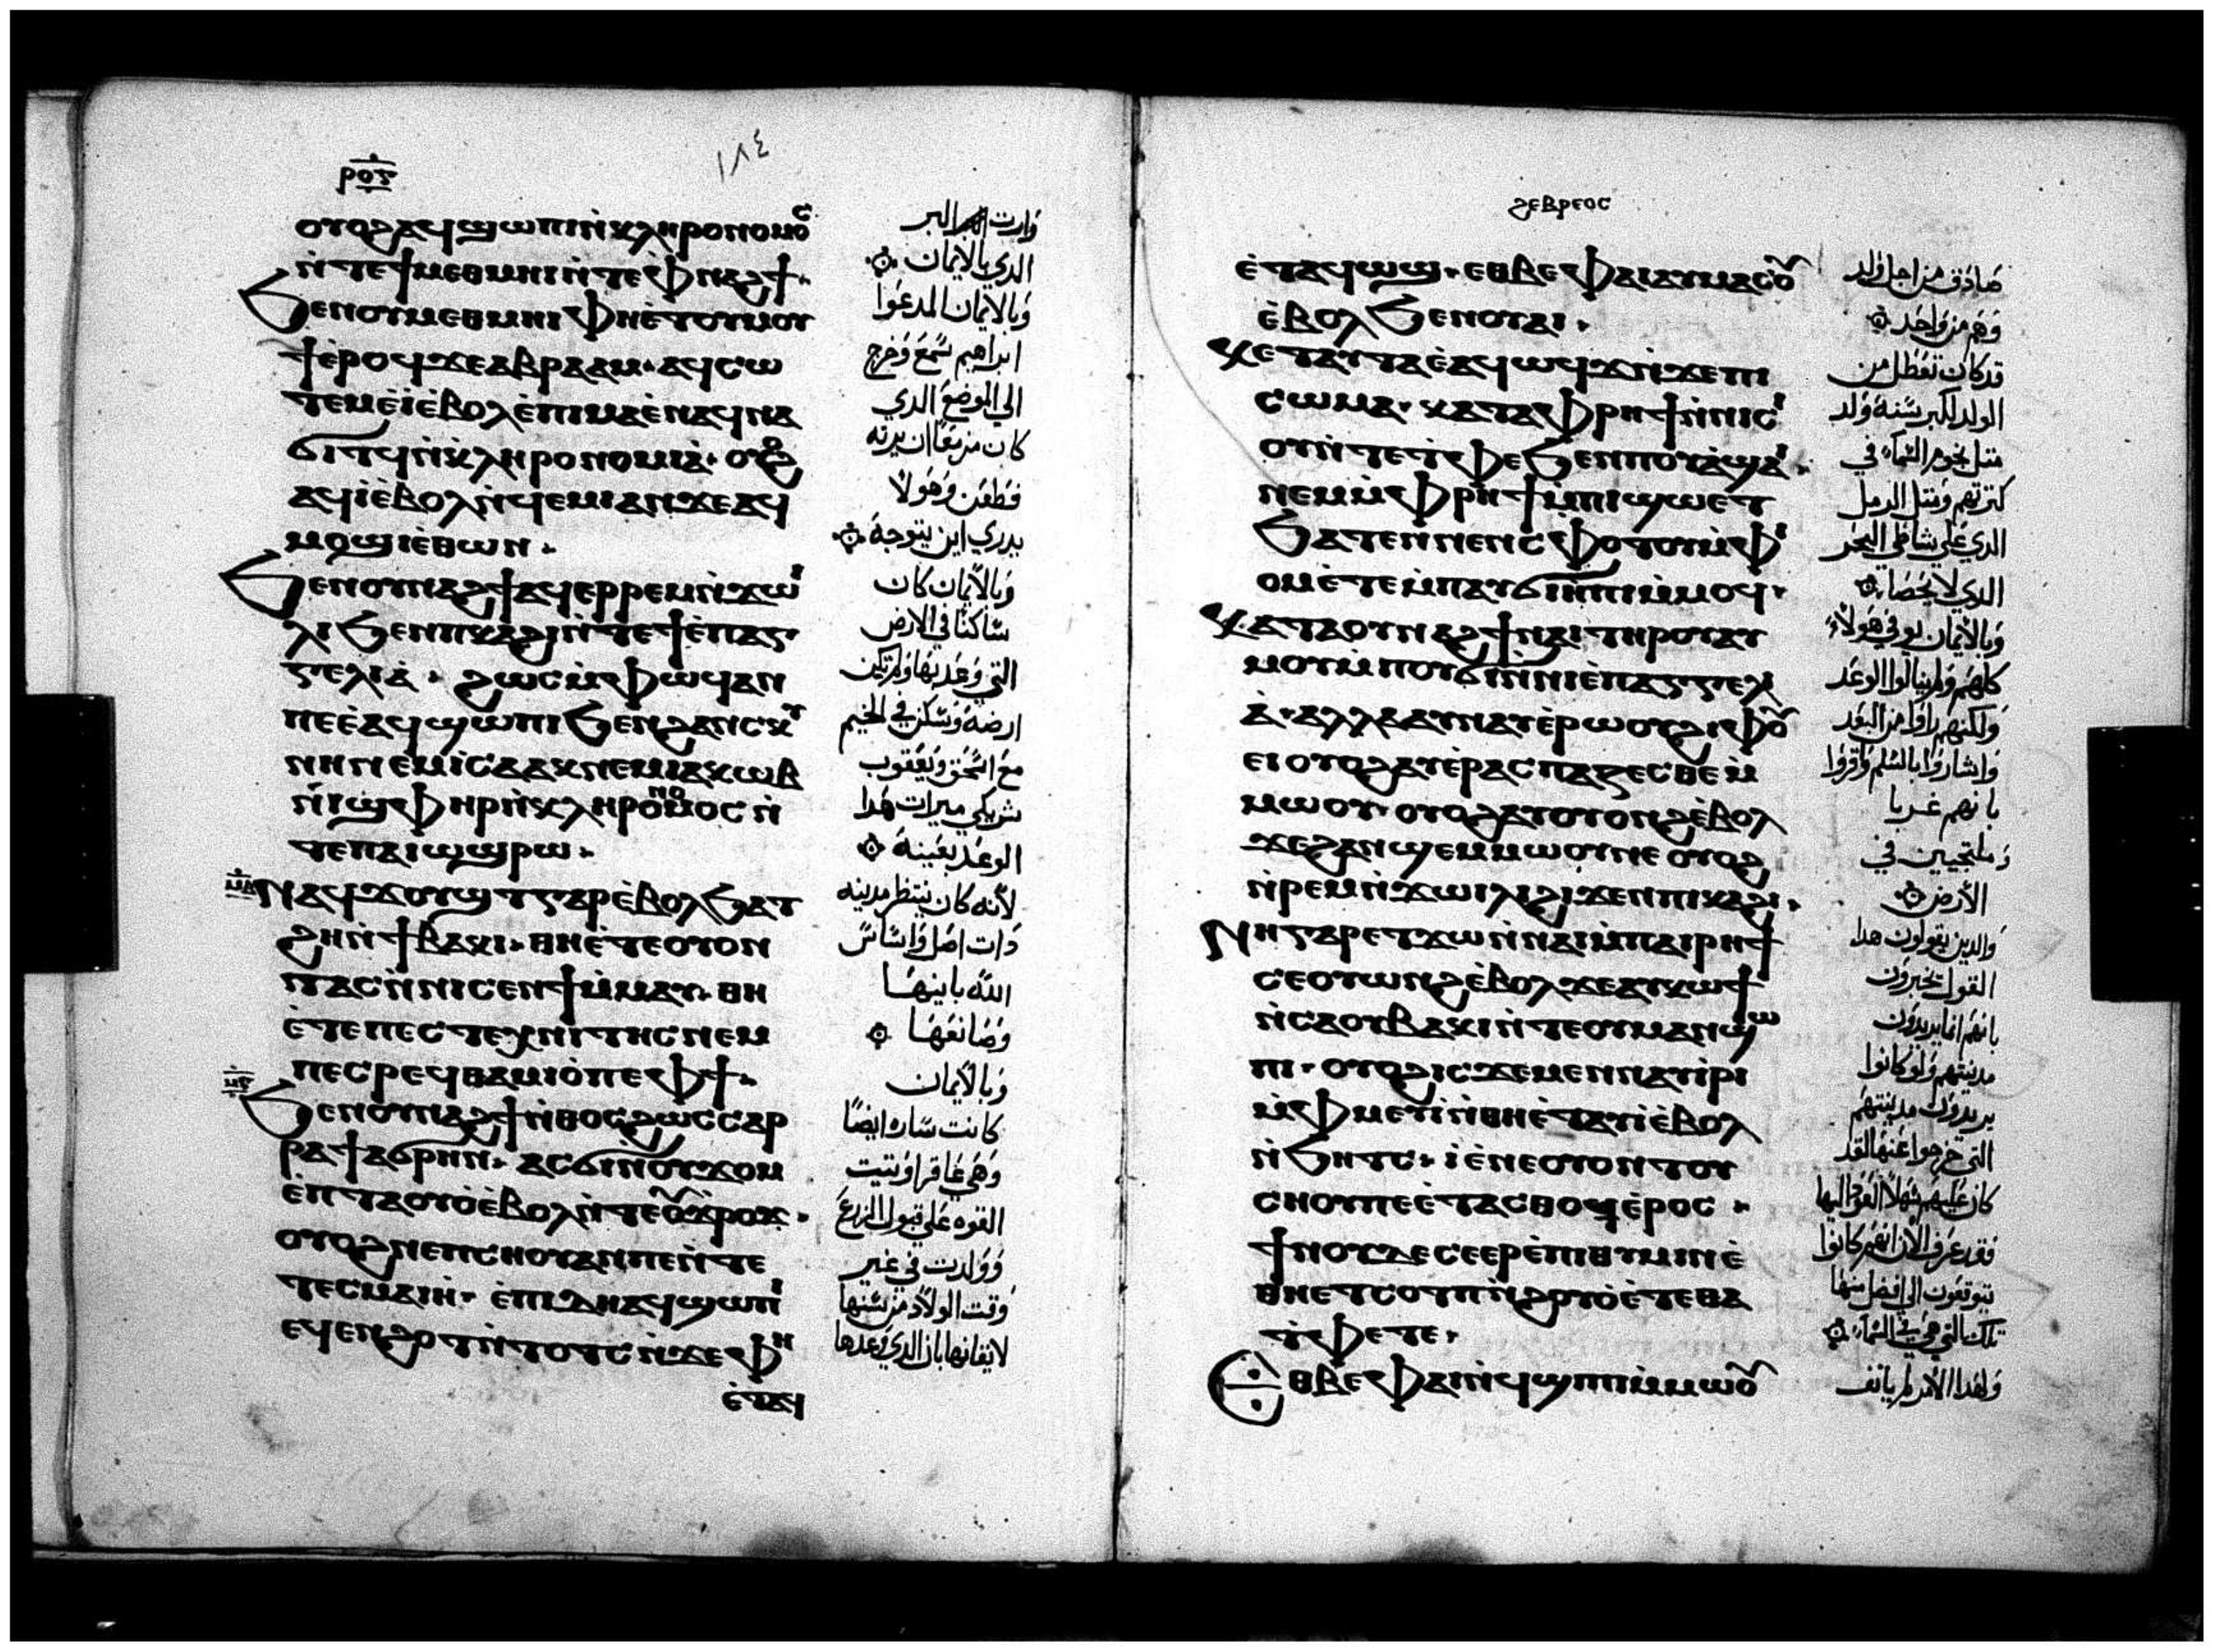 ⲣⲟⲋ
١٨٤
ⲟⲩⲟϩⲁϥϣⲱⲡⲓⲛ̀ⲕⲗⲏⲣⲟⲛⲟⲙⲟⲥ
ⲛ̀ⲧⲉϯⲙⲉⲑⲙⲏⲓⲛ̀ⲧⲉⲫⲛⲁϩϯ·
ϧⲉⲛⲟⲩⲙⲉⲑⲙⲏⲓⲫⲏⲉ̀ⲧⲟⲩⲙⲟⲩ
ϯⲉ̀ⲣⲟϥϫⲉⲁⲃⲣⲁⲁⲙ·ⲁϥⲥⲱ
ⲧⲉⲙⲉ̀ⲓ̀ⲉ̀ⲃⲟⲗⲉ̀ⲡⲓⲙⲁⲉ̀ⲛⲁϥⲛⲁ
ϭⲓⲧϥⲛ̀ⲕ̀ⲗⲏⲣⲟⲛⲟⲙⲓⲁ̀·ⲟⲩⲟϩ
ⲁϥⲓ̀ⲉ̀ⲃⲟⲗⲛ̀ϥⲉⲙⲓⲁⲛϫⲉⲁϥ
ⲙⲟϣⲓⲉ̀ⲑⲱⲛ·
ϧⲉⲛⲟⲩⲛⲁϩϯⲁϥⲉⲣⲣⲉⲙⲛ̀ϫⲱⲓ
ⲗⲓϧⲉⲛⲡⲕⲁϩⲓⲛ̀ⲧⲉϯⲉ̀ⲡⲁⲅ
ⲅⲉⲗⲓⲁ̀·ϩⲱⲥⲙ̀ⲫⲱϥⲁⲛ
ⲡⲉⲉ̀ⲁϥϣⲱⲡⲓϧⲉⲛϩⲁⲛⲥⲕⲩ
ⲛⲏⲛⲉⲙⲓⲥⲁⲁⲕⲛⲉⲙⲓⲁⲕⲱⲃ
ⲛ̀ⲓ̀ϣⲫⲏⲣⲛ̀ⲕⲗⲏⲣⲟⲛⲟⲙⲟⲥⲛ̀
ⲧⲉⲡⲁⲓⲱϣⲣⲱ·
ⲙⲇ ⲛⲁϥϫⲟⲩϣⲧⲅⲁⲣⲉ̀ⲃⲟⲗϧⲁⲧ
ϩⲏⲛ̀ϯⲃⲁⲕⲓ·ⲑⲏⲉ̀ⲧⲉⲟⲩⲟⲛ
ⲛⲧⲁⲥⲛ̀ⲛⲓⲥⲉⲛϯⲙ̀ⲙⲁⲩ·ⲑⲏ
ⲉ̀ⲧⲉⲡⲉⲥⲧⲉⲭⲛⲓⲧⲏⲥⲛⲉⲙ
ⲡⲉⲥⲣⲉϥⲑⲁⲙⲓⲟ̀ⲡⲉⲫϯ·
ϧⲉⲛⲟⲩⲛⲁϩϯⲛ̀ⲑⲟⲥϩⲱⲥⲥⲁⲣ
ⲣⲁϯⲁϭⲣⲏⲛ·ⲁⲥϭⲓⲛ̀ⲟⲩϫⲟⲙ
ⲉ̀ⲛⲧⲁⲟⲩⲟ̀ⲉ̀ⲃⲟⲗⲛ̀ⲧⲉⲟⲩϫ̀ⲣⲟϫ·
ⲟⲩⲟϩⲛⲉⲡⲥⲛⲟⲩⲁⲛⲡⲉⲛ̀ⲧⲉ
ⲧⲉⲥⲙⲁⲓⲏ̀·ⲉ̀ⲡⲓⲇⲏⲁϥϣⲱⲡⲓ
ⲉϥⲉⲛϩⲟⲧⲛ̀ⲧⲟⲧⲥⲛ̀ϫⲉⲫⲏ
ⲉ̀ⲧⲁϥ
وارت البر
الدي بالايمان
وبالايمان المدعوا
ابراهيم سمع وخرج
الى الموضع الدي
كان مزمعا ان يرته
فطعن وهولا
يدري اين يتوجه
وبالايمان كان
ساكنا في الارض
التي وعد بها ولم تكن
ارضه وسكن في الخيم
مع اسحق ويعقوب
شريكي ميرات هدا
الوعد بعينه
لانه كان ينتظر مدينه
دات اصل واساس
الله بانيها
وصانعها
وبالايمان
كانت ساره ايضا
وهي عاقر اوتيت
القوه على قبول الزرع
وولدت في غير
وقت الولاد من سنها
لايقانها بان الدي وعدها
ϩⲉⲃⲣⲉⲟⲥ
ⲉ̀ⲧⲁϥⲱϣ·ⲉⲑⲃⲉⲫⲁⲓⲁⲩⲙⲁⲥⲟⲩ
ⲉ̀ⲃⲟⲗϧⲉⲛⲟⲩⲁⲓ·
ⲕⲉⲧⲁⲩⲧⲁⲉ̀ⲁϥⲱϥϫⲛ̀ϫⲉⲡⲓ
ⲥⲱⲙⲁ·ⲕⲁⲧⲁⲫⲣⲏϯⲛ̀ⲛⲓⲥⲓ
ⲟⲩⲛ̀ⲧⲉⲧ̀ⲫⲉϧⲉⲛⲡⲟⲩⲁ̀ϣⲁⲓ·
ⲛⲉⲙⲙ̀ⲫⲣⲏϯⲙ̀ⲡⲓϣⲱⲉⲧ
ϧⲁⲧⲉⲛⲛⲉⲛⲥⲫⲟⲧⲟⲩⲙ̀ⲫⲓ
ⲟⲙⲉ̀ⲧⲉⲙ̀ⲡⲁⲩϭⲓⲏ̀ⲡⲓⲙ̀ⲙⲟϥ·
ⲕⲁⲧⲁⲟⲩⲛⲁϩϯⲛⲁⲓⲧⲏⲣⲟⲩⲁⲩ
ⲙⲟⲩⲙ̀ⲡⲟⲩϭⲓⲛ̀ⲛⲓⲉ̀ⲡⲁⲅⲅⲉⲗⲓ
ⲁ̀·ⲁⲗⲗⲁⲁⲩⲛⲁⲩⲉ̀ⲣⲱⲟⲩϩⲓⲫⲟⲩ
ⲉⲓⲟⲩⲟϩⲁⲩⲉ̀ⲣⲁⲥⲡⲁⲍⲉⲥⲑⲉⲙ̀
ⲙⲱⲟⲩ·ⲟⲩⲟϩⲁⲩⲟⲩⲟⲛϩⲉ̀ⲃⲟⲗ
ϫⲉϩⲁⲛϣⲉⲙⲙⲱⲟⲩⲛⲉⲟⲩⲟϩ
ⲛ̀ⲣⲉⲙⲛ̀ϫⲱⲓⲗⲓϩⲓϫⲉⲛⲡⲓⲕⲁϩⲓ·
ⲛⲏⲅⲁⲣⲉⲧϫⲱⲛ̀ⲛⲁⲓⲙ̀ⲡⲁⲓⲣⲏϯ
ⲥⲉⲟⲩⲱⲛϩⲉ̀ⲃⲟⲗϫⲉⲁⲩⲕⲱϯ
ⲛ̀ⲥⲁⲟⲩⲃⲁⲕⲓⲛ̀ⲧⲉⲟⲩⲙⲁⲛ̀ϣⲱ
ⲡⲓ·ⲟⲩⲟϩⲓⲥϫⲉⲙⲉⲛⲛⲁⲩⲓ̀ⲣⲓ
ⲙ̀ⲫⲙⲉⲩⲓ̀ⲛ̀ⲑⲏⲉ̀ⲧⲁⲩⲓ̀ⲉ̀ⲃⲟⲗ
ⲛ̀ϧⲏⲧⲥ·ⲓ̀ⲉ̀ⲛⲉⲟⲩⲟⲛⲧⲟⲩ
ⲥⲛⲟⲩⲡⲉⲉ̀ⲧⲁⲥⲑⲟϥⲉ̀ⲣⲟⲥ·
ϯⲛⲟⲩⲇⲉⲥⲉⲉⲣⲉ̀ⲡⲓⲑⲩⲙⲓⲛⲉ̀
ⲑⲏⲉⲧⲥⲟⲧⲡⲛ̀ϩⲟⲩⲟ̀ⲉ̀ⲧⲉⲑⲁ
ⲧ̀ⲫⲉⲧⲉ·
ⲉⲑⲃⲉⲫⲁⲓⲛ̀ϥϣⲓⲡⲓⲙ̀ⲙⲱⲟⲩ
صادق من اجل ولد
وهم من واحد
قد كان تعطل من
الولد لكبر سنه ولد
متل نجوم السماء في
كترتهم ومتل الرمل
الدي على شاطي البحر
الدي لا يحصا
وبالايمان توفي هولاء
كلهم ولم ينالوا الوعد
ولكنهم راوا من البعد
واشاروا بالسلم واقروا
بانهم غربا
وملتجيين في
الارض
والدين يقولون هدا
القول يخبرون
بانهم انما يريدون
مدينتهم ولو كانوا
يريدون مدينتهم
التي خرجوا عنها لقد
كان عليهم سهلا العود اليها
فقد عرف الان انهم كانوا
يتوقون الى افضل منها
تلك التي هي في السماء
ولهدا الامر لم يانف